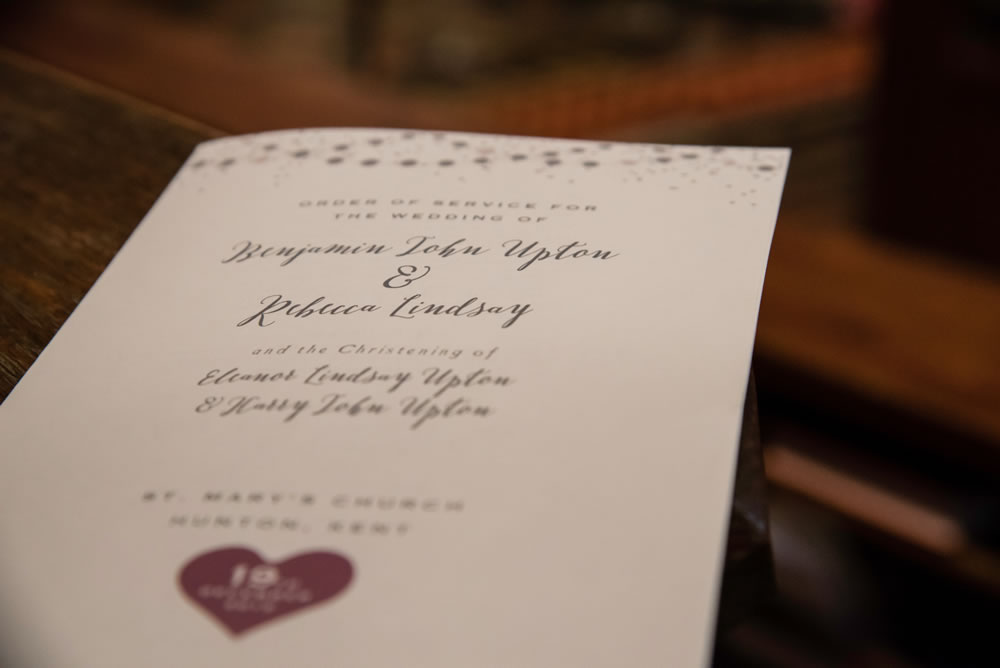 ORDER OF SERVICE FOR
THE WEDDING OF
Benjamin John Upton
&
Rebecca Lindsay
and the Christening of
Eleanor Lindsay Upton
& Harry John Upton
ST. MARY'S CHURCH
HUNTON, KENT